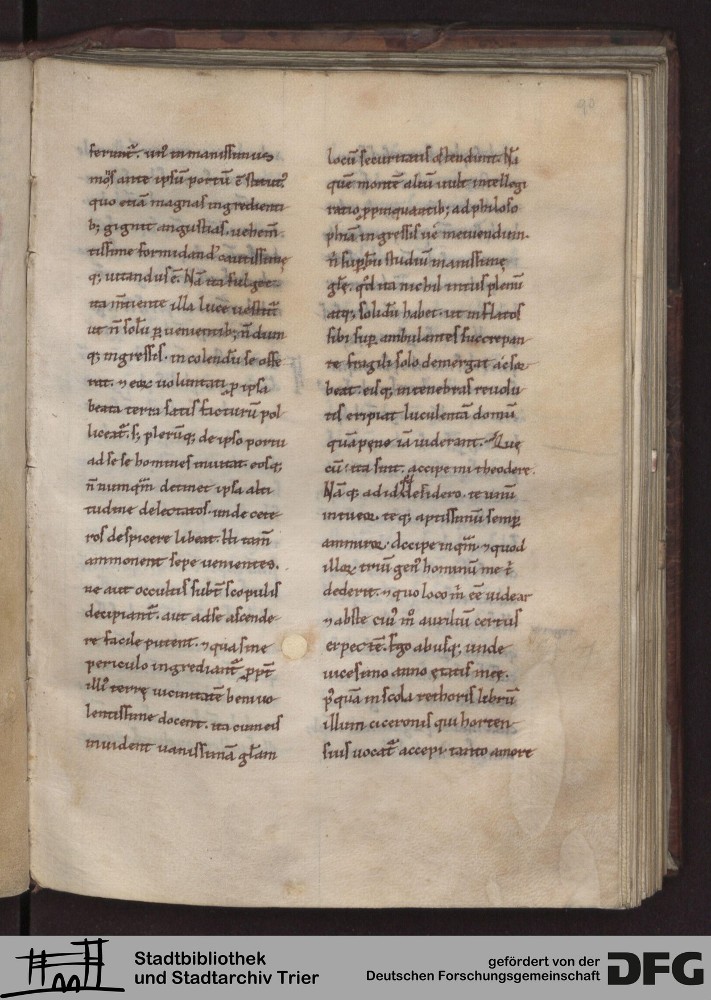 90
ferunt̃. un̾ inmanissimus
mõs ante ipsũ portũ ẽ stitut᾽
quo etiã magnas ingredienti
b; gignit angustias. uehem̃
tissime formidand᾽ cautissimeq;
q; uitandus ẽ. Nã ita fulget.
ita m̃tiente illa luce uestit̃
ut ñ solũ ꝑuenientib; ñdum
q; ingressis. incolendũ se offe
rat. ⁊ eor̨ uoluntati p̱ ipsa
beata terra satis facturũ pol
liceat̃. s; plerũq; de ipso portu
ad se se homines inuitat. eosq;
ñnumqm̃ detinet ipsa alti
tudine delectatos. unde cete
ros despicere libeat. Hi tam̃
ammonent sepe uenientes.
ne aut occultis subt̃ scopulis
decipiant̃. aut ad se ascende
re facile putent. ⁊ qua sine
periculo ingrediant̃ ꝓpt̃
illi᾽ terrę uicinitatẽ beniuo
lentissime docent. ita cum eis
inuident uanissimã gl̃am
locũ securitatis ostendunt. Nã
quẽ montẽ aliũ uult intellegi
ratio ꝓpinquantib; ad philoso
phiã ingressis ue metuendum.
ñ suꝑbũ studiũ inanissimę
gl̃ę. qđ ita nichil intus plenũ
atq; solidũ habet. ut inflatos
sibi suꝑ ambulantes succrepan
te fragili solo demergat ac sor
beat. eisq; in tenebras reuolu
tis eripiat luculentã domũ
quã pęne iã uiderant. Quę
cũ ita sint. accipe mi theodore.
Nãq; ad id qđ desidero. te unũ
intueor. teq; aptissimũ semꝑ
ammiror. Accipe inqm̃. ⁊ quod
illor̨ triũ gen᾽ hominũ me t̃
dederit. ⁊ quo loco m̃ ẽe uidear
⁊ abs te cui᾽ m̃ auxiliũ certus
expectẽ. Ego ab usq; unde
uicesimo anno ętatis meę.
p᾽quã in scola rethoris librũ
illum ciceronis qui horten
sius uocat̃ accepi. tanto amore
Stadtbibliothek
und Stadtarchiv Trier
gefördert von der
Deutschen Forschungsgemeinschaft
DFG